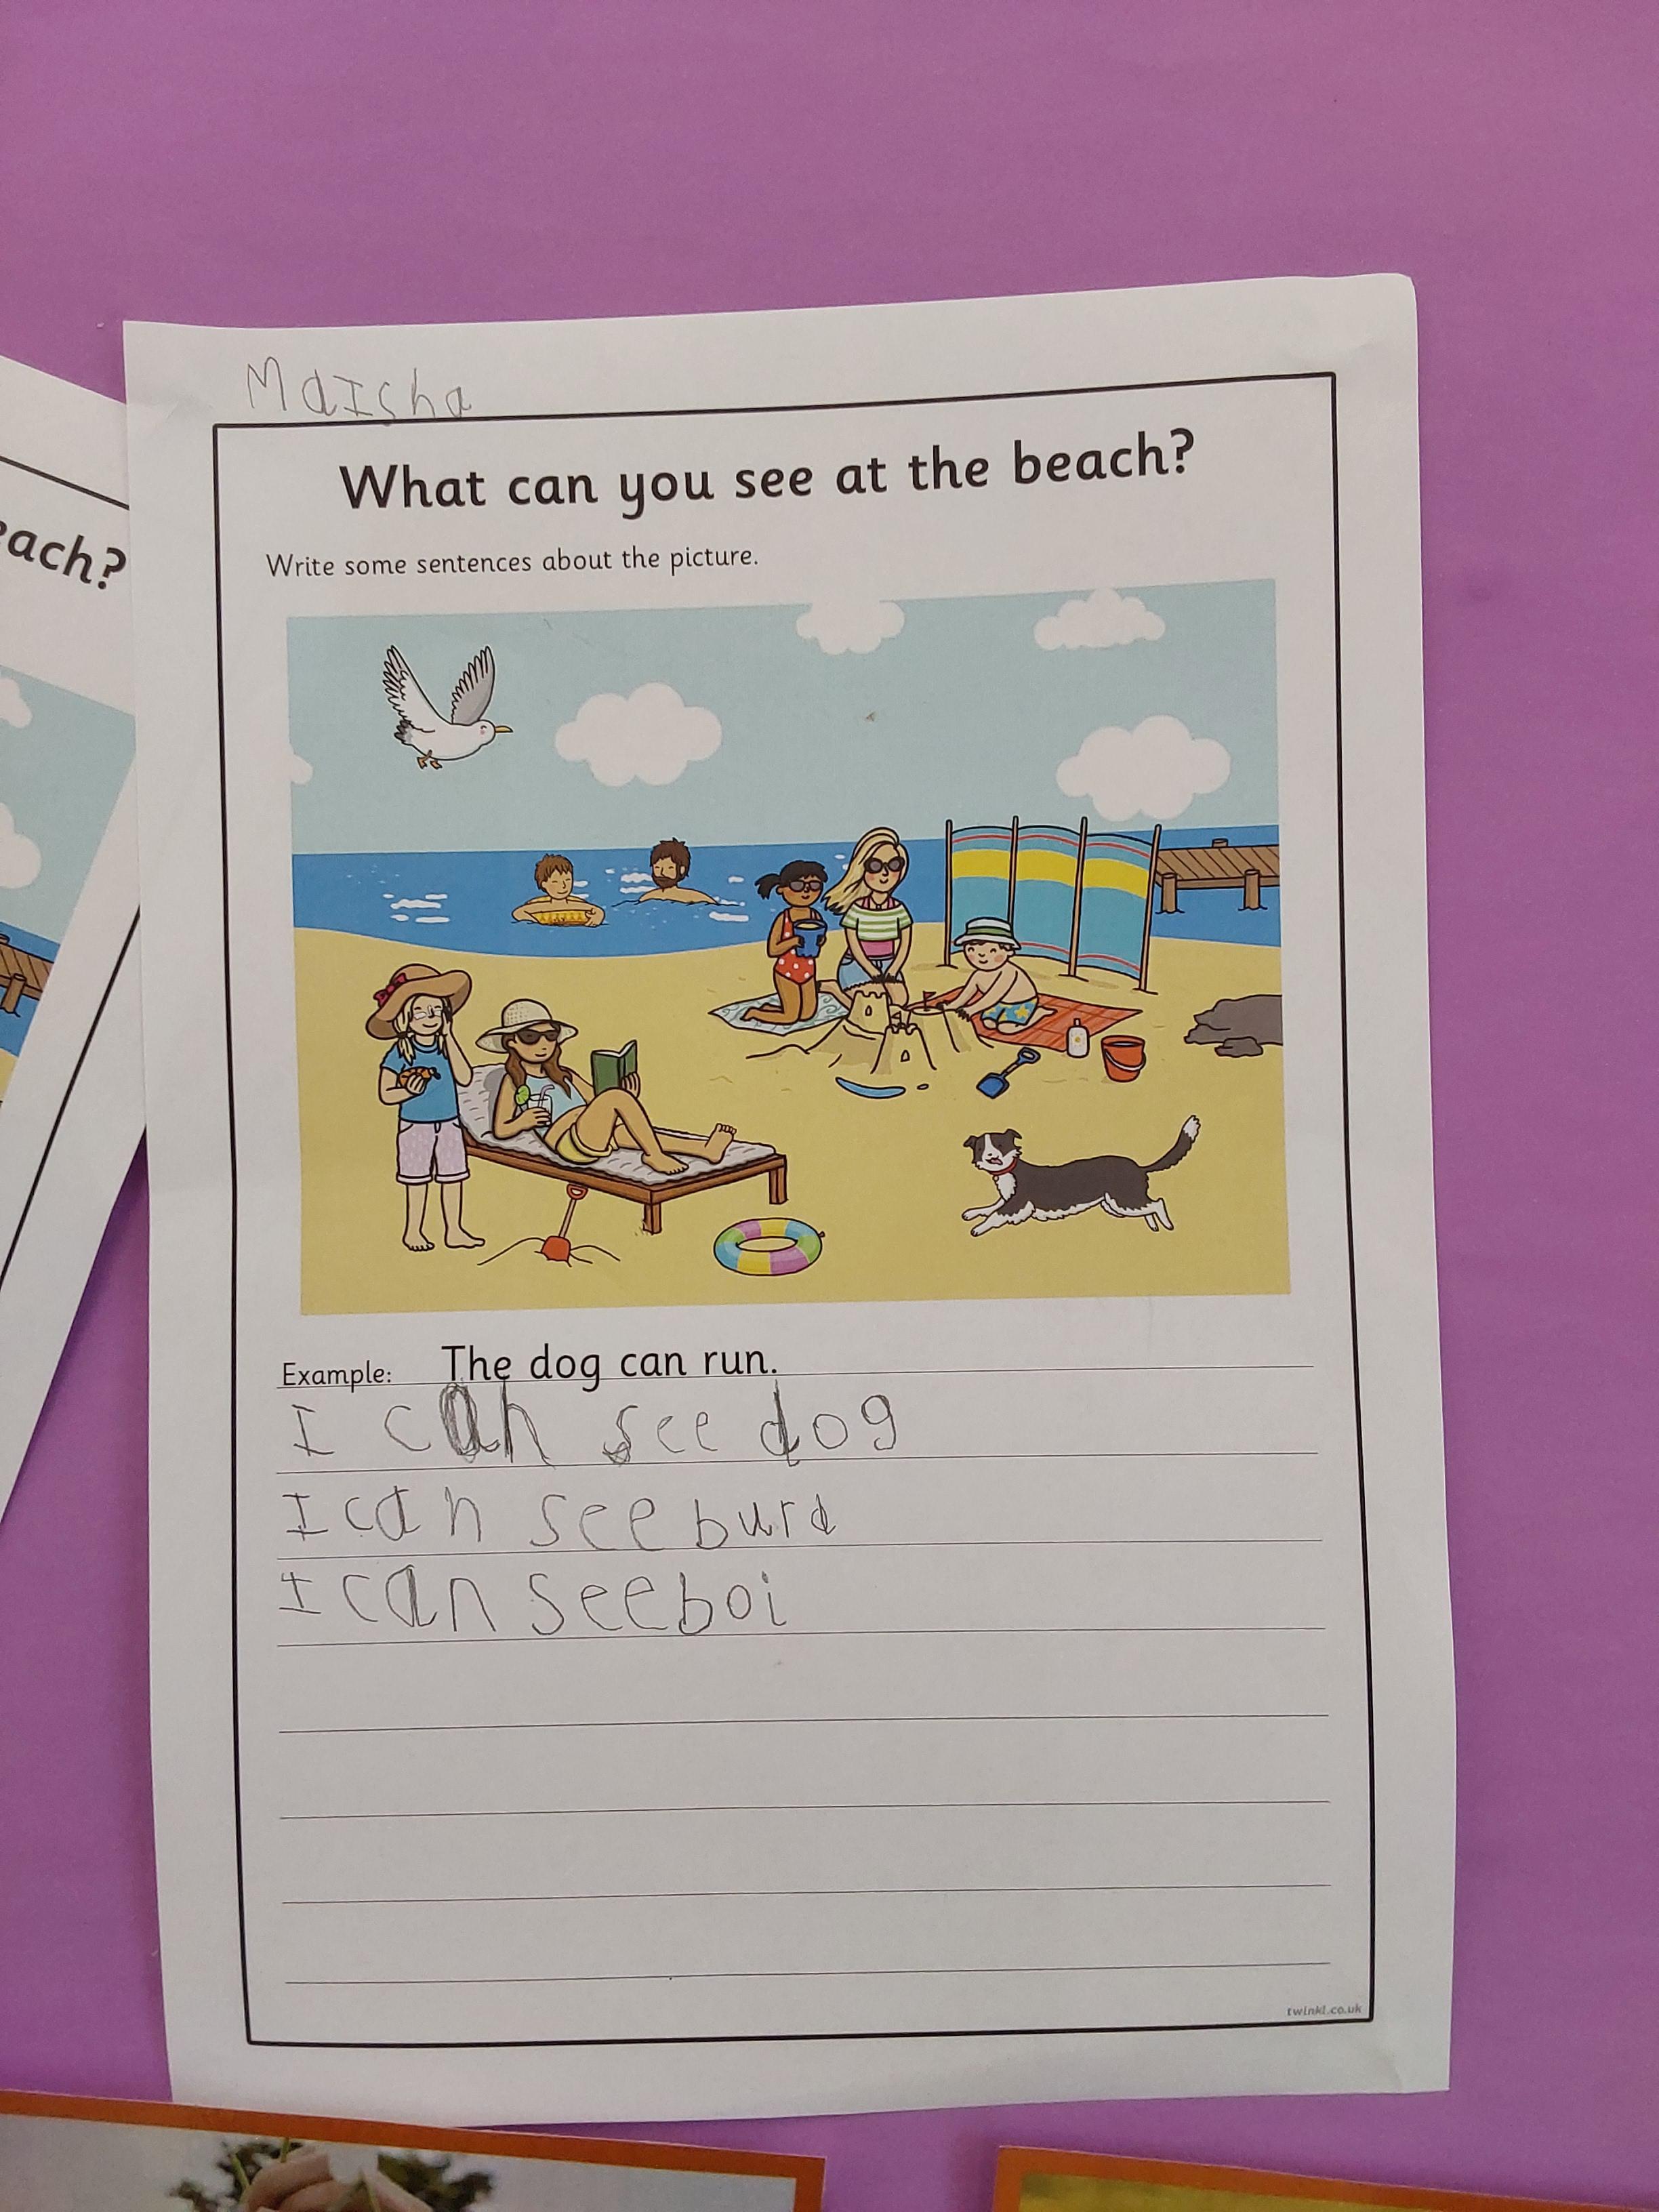 MaIsha
What can you see at the beach?
each?
Write some sentences about the picture.
Example: The dog can run.
I can see dog
I can see burd
I can see boi
twinkl.co.uk